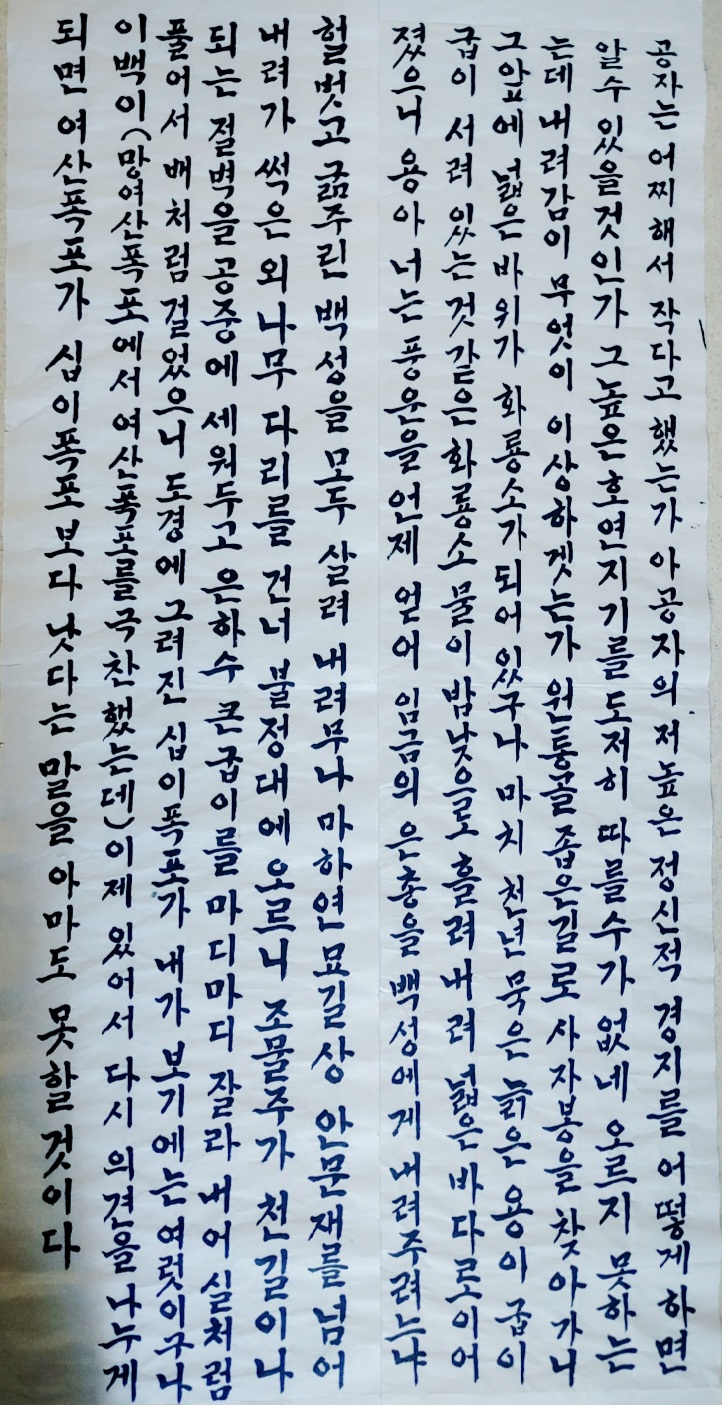 공자는 어찌해서 작다고 했는가 아 공자의 저 높은 정신적 경지를 어떻게 하면
알수 있을것인가 그 높은 호연지기를 도저히 따를수가 없네 오르지 못하는
는데 내려감이 무엇이 이상하겟는가 원통골 좁은길로 사자봉을 찾아가니
그앞에 넓은 바위가 화룡소가 되어있구나 마치 천년 묵은 늙은 용이 굽이
굽이 서려 있는 것 같은 화룡소 물이 밤낮으로 흘러내려 넓은 바다로 이어
졌으니 용아 너는 풍운을 언제 얻어 임금의 은총을 백성에게 내려주려느냐
헐벗고 굶주린 백성을 모두 살려 내려무나 마하연 묘길상 안문재를 넘어
내려가 썩은 외나무 다리를 건너 불정대에 오르니 조물주가 천길이나
되는 절벽을 공중에 세워두고 은하수 큰 굽이를 마디마디 잘라 내어 실처럼
풀어서 배처럼 걸었으니 도경에 그려진 십이폭포가 내가 보기에는 여럿이구나
이백이(망여산폭포에서 여산폭포를 극찬했는데)이제 있어서 다시 의견을 나누게
되면 여산폭포가 십이폭포보다 낫다는 말을 아마도 못할것이다